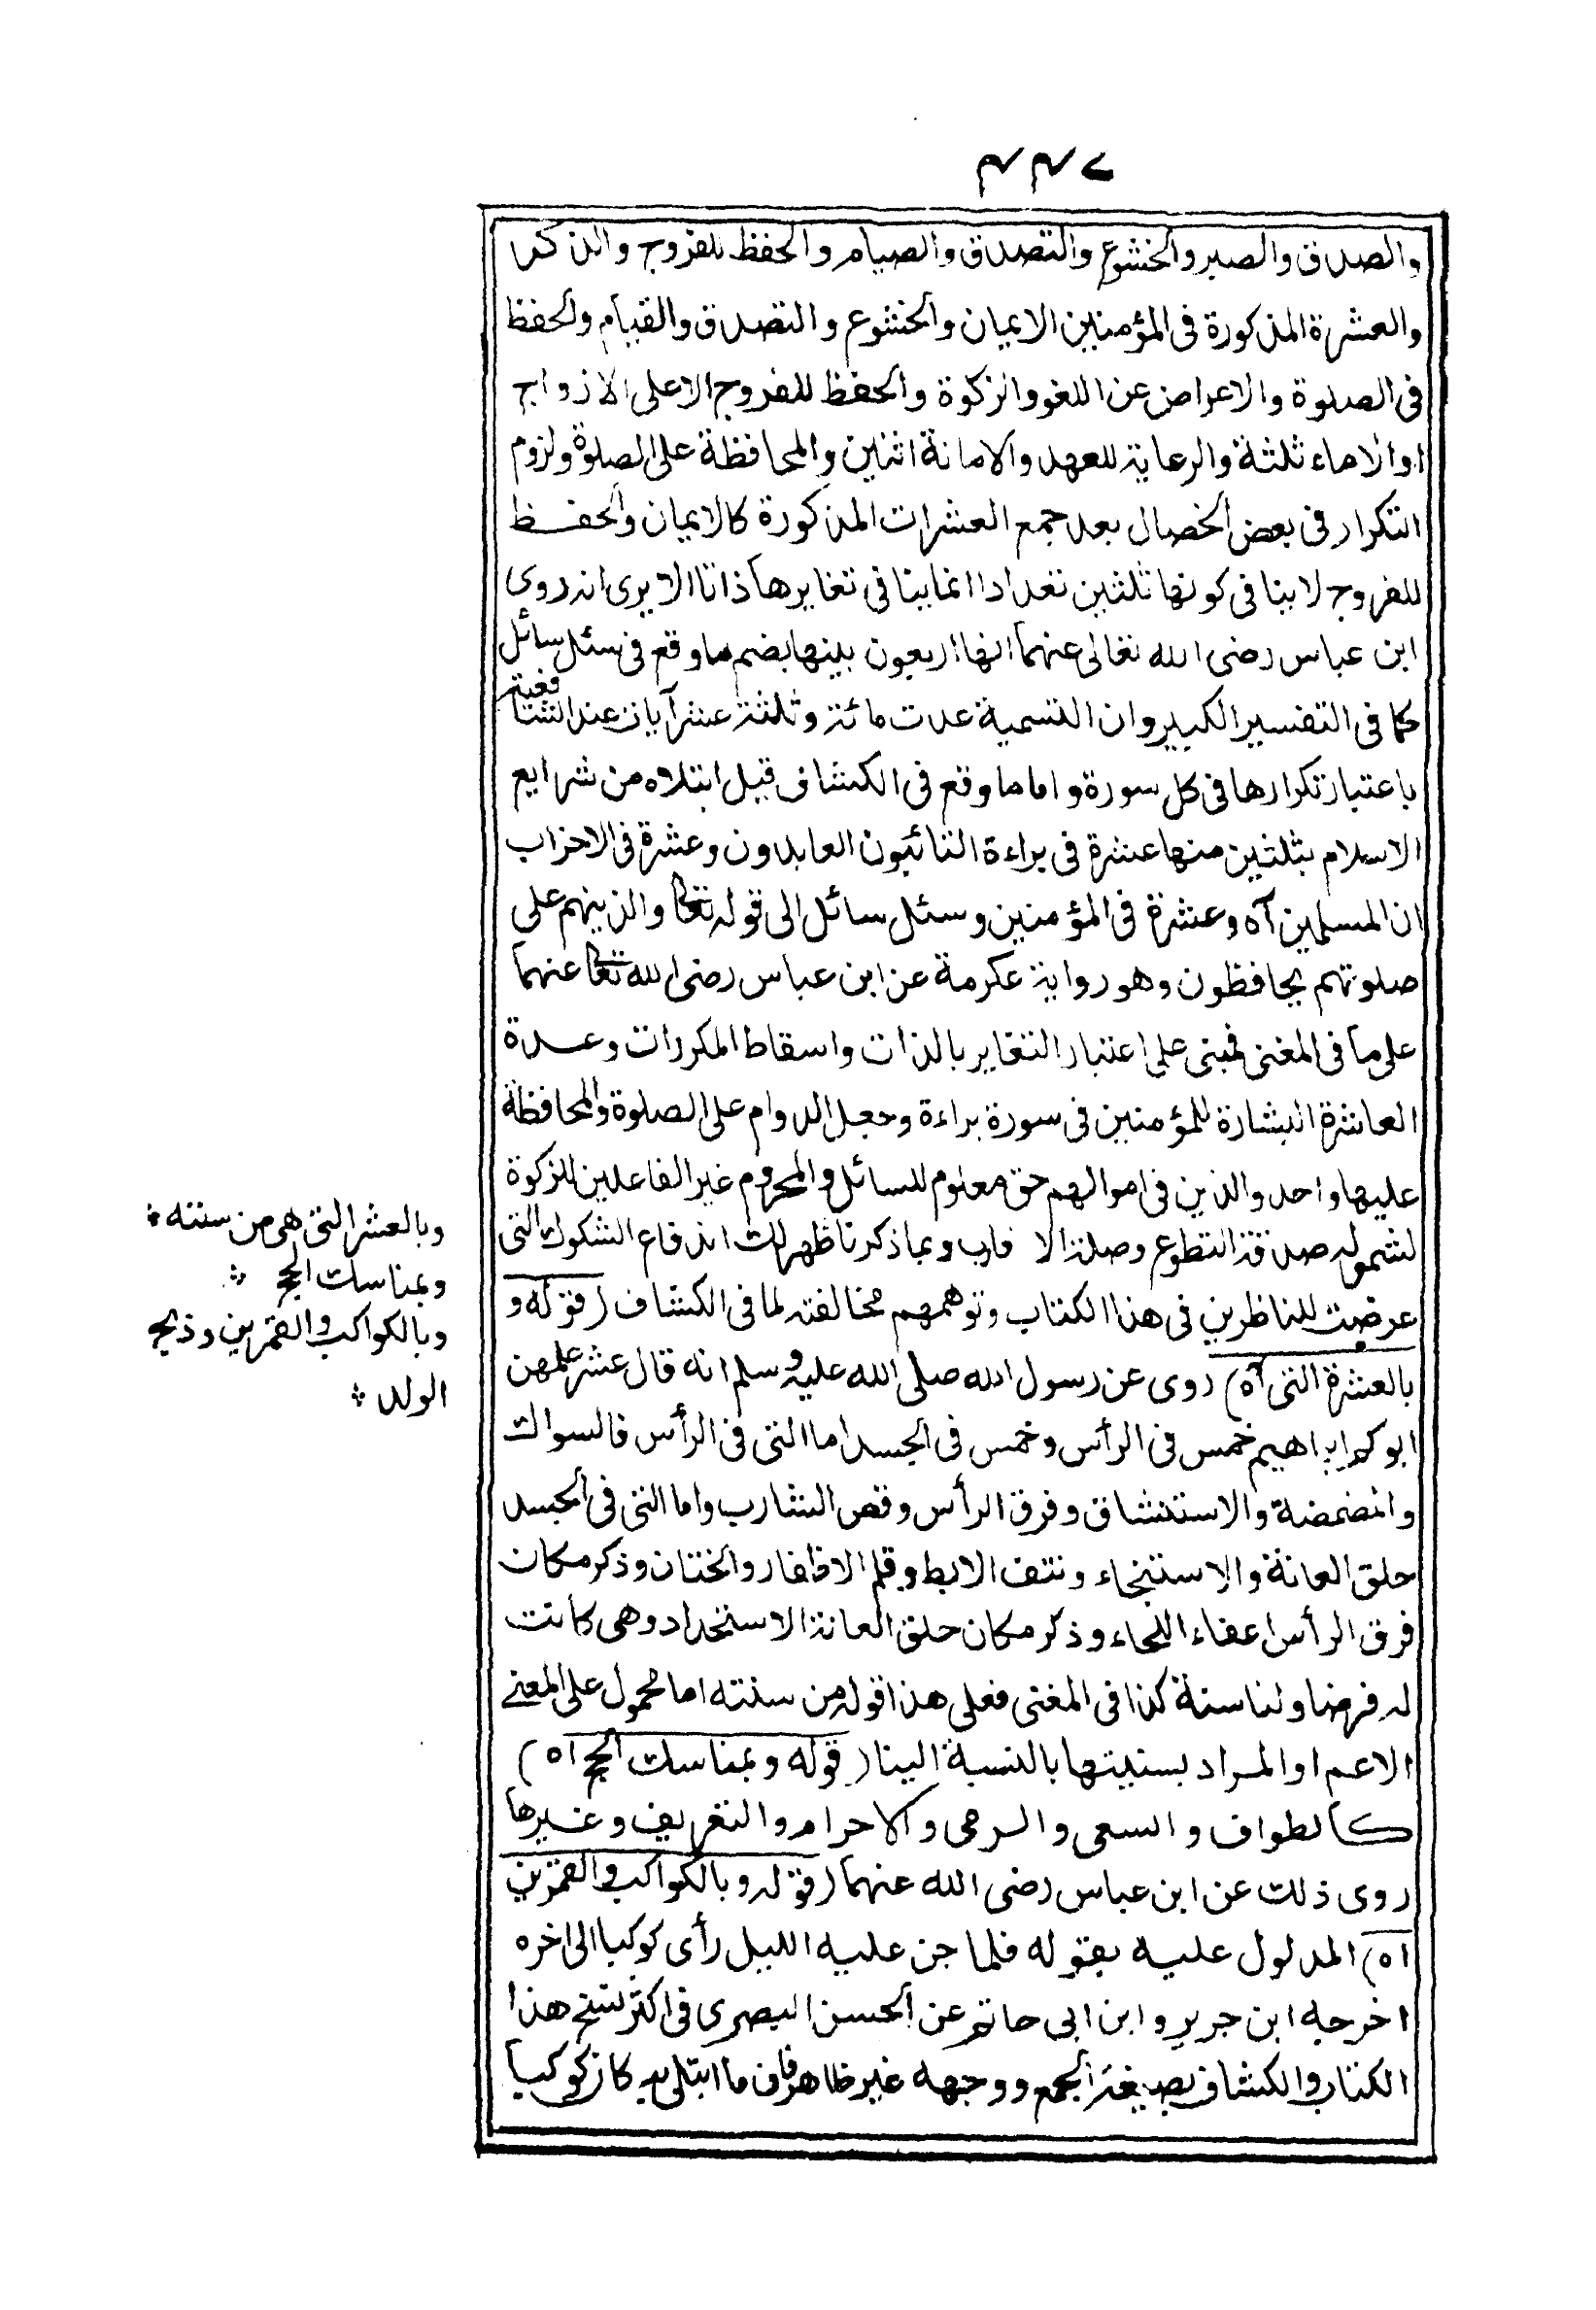 ٤٤٧
والصدق والصبر والخشوع والتصدق والصيام والحفظ للفروج والذكر
والعشرة المذكورة فى المؤمنين الايمان والخشوع والتصدق والقيام والحفظ
فى الصلوة والاعراض عن اللغو والزكوة والحفظ للفروج الا على الازواج
او الاماء ثلثة والرعاية للعهد والامانة اثنين والمحافظة على الصلوة ولزوم
التكرار فى بعض الخصال بعد جمع العشرات المذكورة كالايمان والحفظ
للفروج لا ينافى كونها ثلثين تعدادا انما ينافى تغايرها ذاتا الا يرى انه روى
ابن عباس رضى الله تعالى عنهما انها اربعون بينها بضم ما وقع فى سئل سائل
كما فى التفسير الكبير وان التسمية عدت مائة وثلثة عشر آيات عند الشافعية
باعتبار تكرارها فى كل سورة واما ما وقع فى الكشاف قبيل ابتلاه من شرايع
الاسلام بثلثين منها عشرة فى براءة التائبون العابدون وعشرة فى الاحزاب
ان المسلمين آه وعشرة فى المؤمنين وسئل سائل الى قوله تعالى والذينهم على
صلوتهم يحافظون وهو رواية عكرمة عن ابن عباس رضى الله تعالى عنهما
على ما فى المغنى فمبنى على اعتبار التغاير بالذات واسقاط المكررات وعدة
العاشرة البشارة للمؤمنين فى سورة براءة وجعل الدوام على الصلوة والمحافظة
عليها واحد والذين فى اموالهم حق معلوم للسائل والمحروم غير الفاعلين للزكوة
لشموله صدقة التطوع وصلة الاقارب وبما ذكرنا ظهر لك اندفاع الشكوك التى
عرضت للناظرين فى هذا الكتاب وتوهمهم مخالفته لما فى الكشاف (قوله و
بالعشرة التى آه) روى عن رسول الله صلى الله عليه وسلم انه قال عشر علمهن
ابوكم ابراهيم خمس فى الرأس وخمس فى الجسد اما التى فى الرأس فالسواك
والمضمضة والاستنشاق وفرق الرأس وقص الشارب واما التى فى الجسد
حلق العانة والاستنجاء ونتف الابط وقلم الاظفار والختان وذكر مكان
فرق الرأس اعفاء اللحاء وذكر مكان حلق العانة الاستحداد وهى كانت
له فرضا ولنا سنة كذا فى المغنى فعلى هذا قوله من سنته اما محمول على المعنى
الاعم او المراد بسنيتها بالنسبة الينا (قوله وبمناسك الحج اه)
كالطواف والسعى والرمى والاحرام والتعريف وغيرها
روى ذلك عن ابن عباس رضى الله عنهما (قوله وبالكواكب والقمرين
اه) المدلول عليه بقوله فلما جن عليه الليل رأى كوكبا الى اخره
اخرجه ابن جرير وابن ابى حاتم عن الحسن البصرى فى اكثر نسخ هذا
الكتاب والكشاف بصيغة الجمع ووجهه غير ظاهر فان ما ابتلى به كان كوكبا
وبالعشر التى هى من سنته
وبمناسك الحج
وبالكواكب والقمرين وذبح
الولد